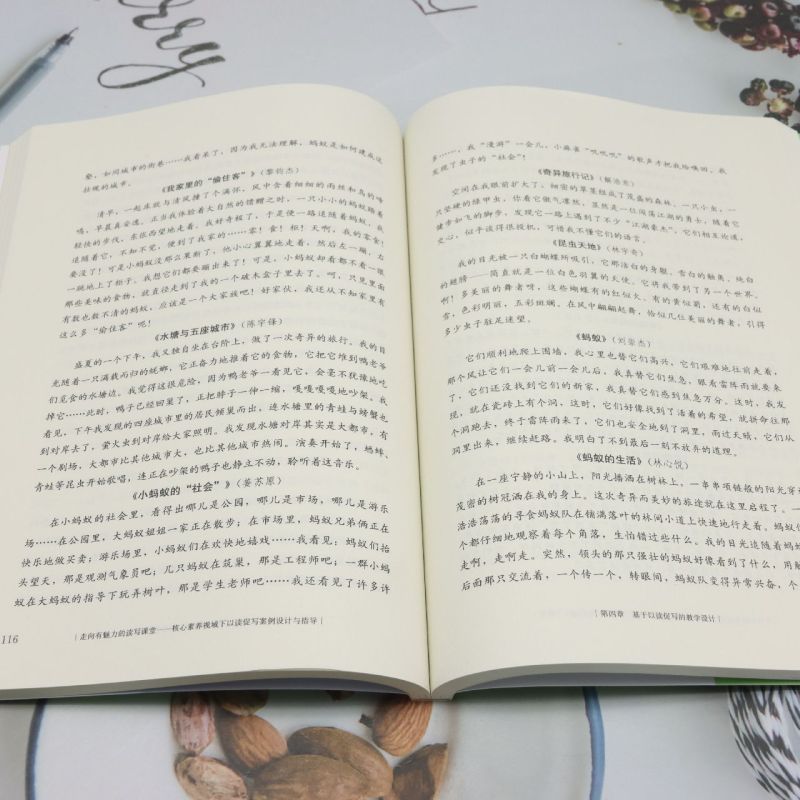 erry
垫，如同城市的街巷……我看呆了，因为我无法理解，蚂蚁是如何建成这
壮观的城市。
《我家里的“偷住客”》（黎钧杰）
清早，一起床就与清风撞了个满怀，风中含着细细的雨丝和鸟的啼
鸣，早晨真安逸。正当我体验着大自然的馈赠之时，一只小小的蚂蚁踏着
轻快的步伐，东张西望地走着。我好奇极了，于是便一路追随着蚂蚁，我
追随着它，不知不觉，便到了我家的……家！食！柜！天啊，我的零食！
要没了！可是小蚂蚁没那么果断了，他小心翼翼地走着，然后左一蹦，右
一跳地上了柜子。我想它们都要蹦出来了！可是，小蚂蚁却看都不看一眼
那些美味的食物，就直径走到了我的一个破木盒子里去了。呵，只见里面
有数也数不清的蚂蚁，应该是一个大家族吧！好家伙，我还从不知家里有
这么多“偷住客”呢！
《水塘与五座城市》（陈宇锋）
盛夏的一个下午，我又独自坐在台阶上，做了一次奇异的旅行。我的目
光随着一只满载而归的蚯蚓，它正奋力地推着它的食物，它把它堆到鸭老爷
们觅食的水塘边。我觉得这很危险，因为鸭老爷一看见它，会毫不犹豫地吃
掉它……此时，鸭子已经回巢了，正把脖子一伸一缩，嘎嘎嘎嘎地吵架。我
看见，下午我发现的四座城市里的居民倾巢而出，连水塘里的青蛙与螃蟹也
到对岸去了，萤火虫到对岸给大家照明。我发现水塘对岸其实是大都市，有
一个剧场，大都市比其他城市大，也比其他城市热闹。演奏开始了，蟋蟀、
青蛙等昆虫开始歌唱，连正在吵架的鸭子也静立不动，聆听着这音乐。
《小蚂蚁的“社会”》（姜苏原）
在小蚂蚁的社会里，看得出哪儿是公园，哪儿是市场，哪儿是游乐
场……在公园里，大蚂蚁姐姐一家正在散步；在市场里，蚂蚁兄弟俩正在
快乐地做买卖；游乐场里，小蚂蚁们在欢快地嬉戏……我看见：蚂蚁们抬
头望天，那是观测气象员吧；几只蚂蚁在筑巢，那是工程师吧；一群小蚂
蚁在大蚂蚁的指导下玩弄树叶，那是学生老师吧……我还看见了许多许
116
走向有魅力的读写课堂——核心素养视域下以读促写案例设计与指导
多……，我“漫游”一会儿，小麻雀“叽叽叽”的歌声才把我给唤回。我
发现了虫子的“社会”！
《奇异旅行记》（解浩 ）
空间在我眼前扩大了：细密的草茎组成了茂盛的森林。一只小虫，一
只坚硬的绿甲虫，你看它傲气凛然，虽然是一位闯荡江湖的勇士，随着它
健步如飞的脚步，发现它一路上遇到了不少“江湖豪杰”，它们相互论谈，
交心，似乎谈得很投机，可惜我不懂它们的语言。
《昆虫天地》（林宇奇）
我的目光被一只白蝴蝶所吸引，它那洁白的身躯，雪白的触角，纯白
的翅膀——简直就是一位白色羽翼的天使。它将我带到了另一个世界。
啊！多美丽的舞者呀，这些蝴蝶有的红似火，有的黄似菊，还有的白似
雪，色彩明丽，五彩斑斓。在风中翩翩起舞，恰似几位美丽的舞者，引得
多少虫子驻足迷望。
《蚂蚁》（刘豪杰）
它们顺利地爬上围墙，我心里也替它们高兴，它们艰难地往前走着，
那个风让它们一会儿前一会儿后，我真替它们焦急，眼看雷阵雨就要来
了，它们还没找到它们的新家，我真替它们感到焦急万分。这时，我发
现，就在瓷砖上有个洞，这时，它们好像找到了活着的希望，就拼命往那
个洞跑去，终于雷阵雨来了，它们也安全地到了洞里，雨过天晴，它们从
洞里出来，继续赶路。我明白了不到最后一刻不放弃的道理。
《蚂蚁的生活》（林心悦）
在一座宁静的小山上，阳光播洒在树林上，一串串链般的阳光穿
茂密的树冠洒在我的身上。这次奇异而美妙的旅途就在这里启程了。一
浩浩荡荡的寻食蚂蚁队在铺满落叶的林间小道上快速地行走着。蚂蚁
个都仔细地观察着每个角落，生怕错过些什么。我的目光追随着蚂蚁
走啊，走啊走。突然，领头的那只强壮的蚂蚁好像看到了什么，用
后面那只交流着，一个传一个，转眼间，蚂蚁队变得异常兴奋，个
第四章 基于以读促写的教学设计